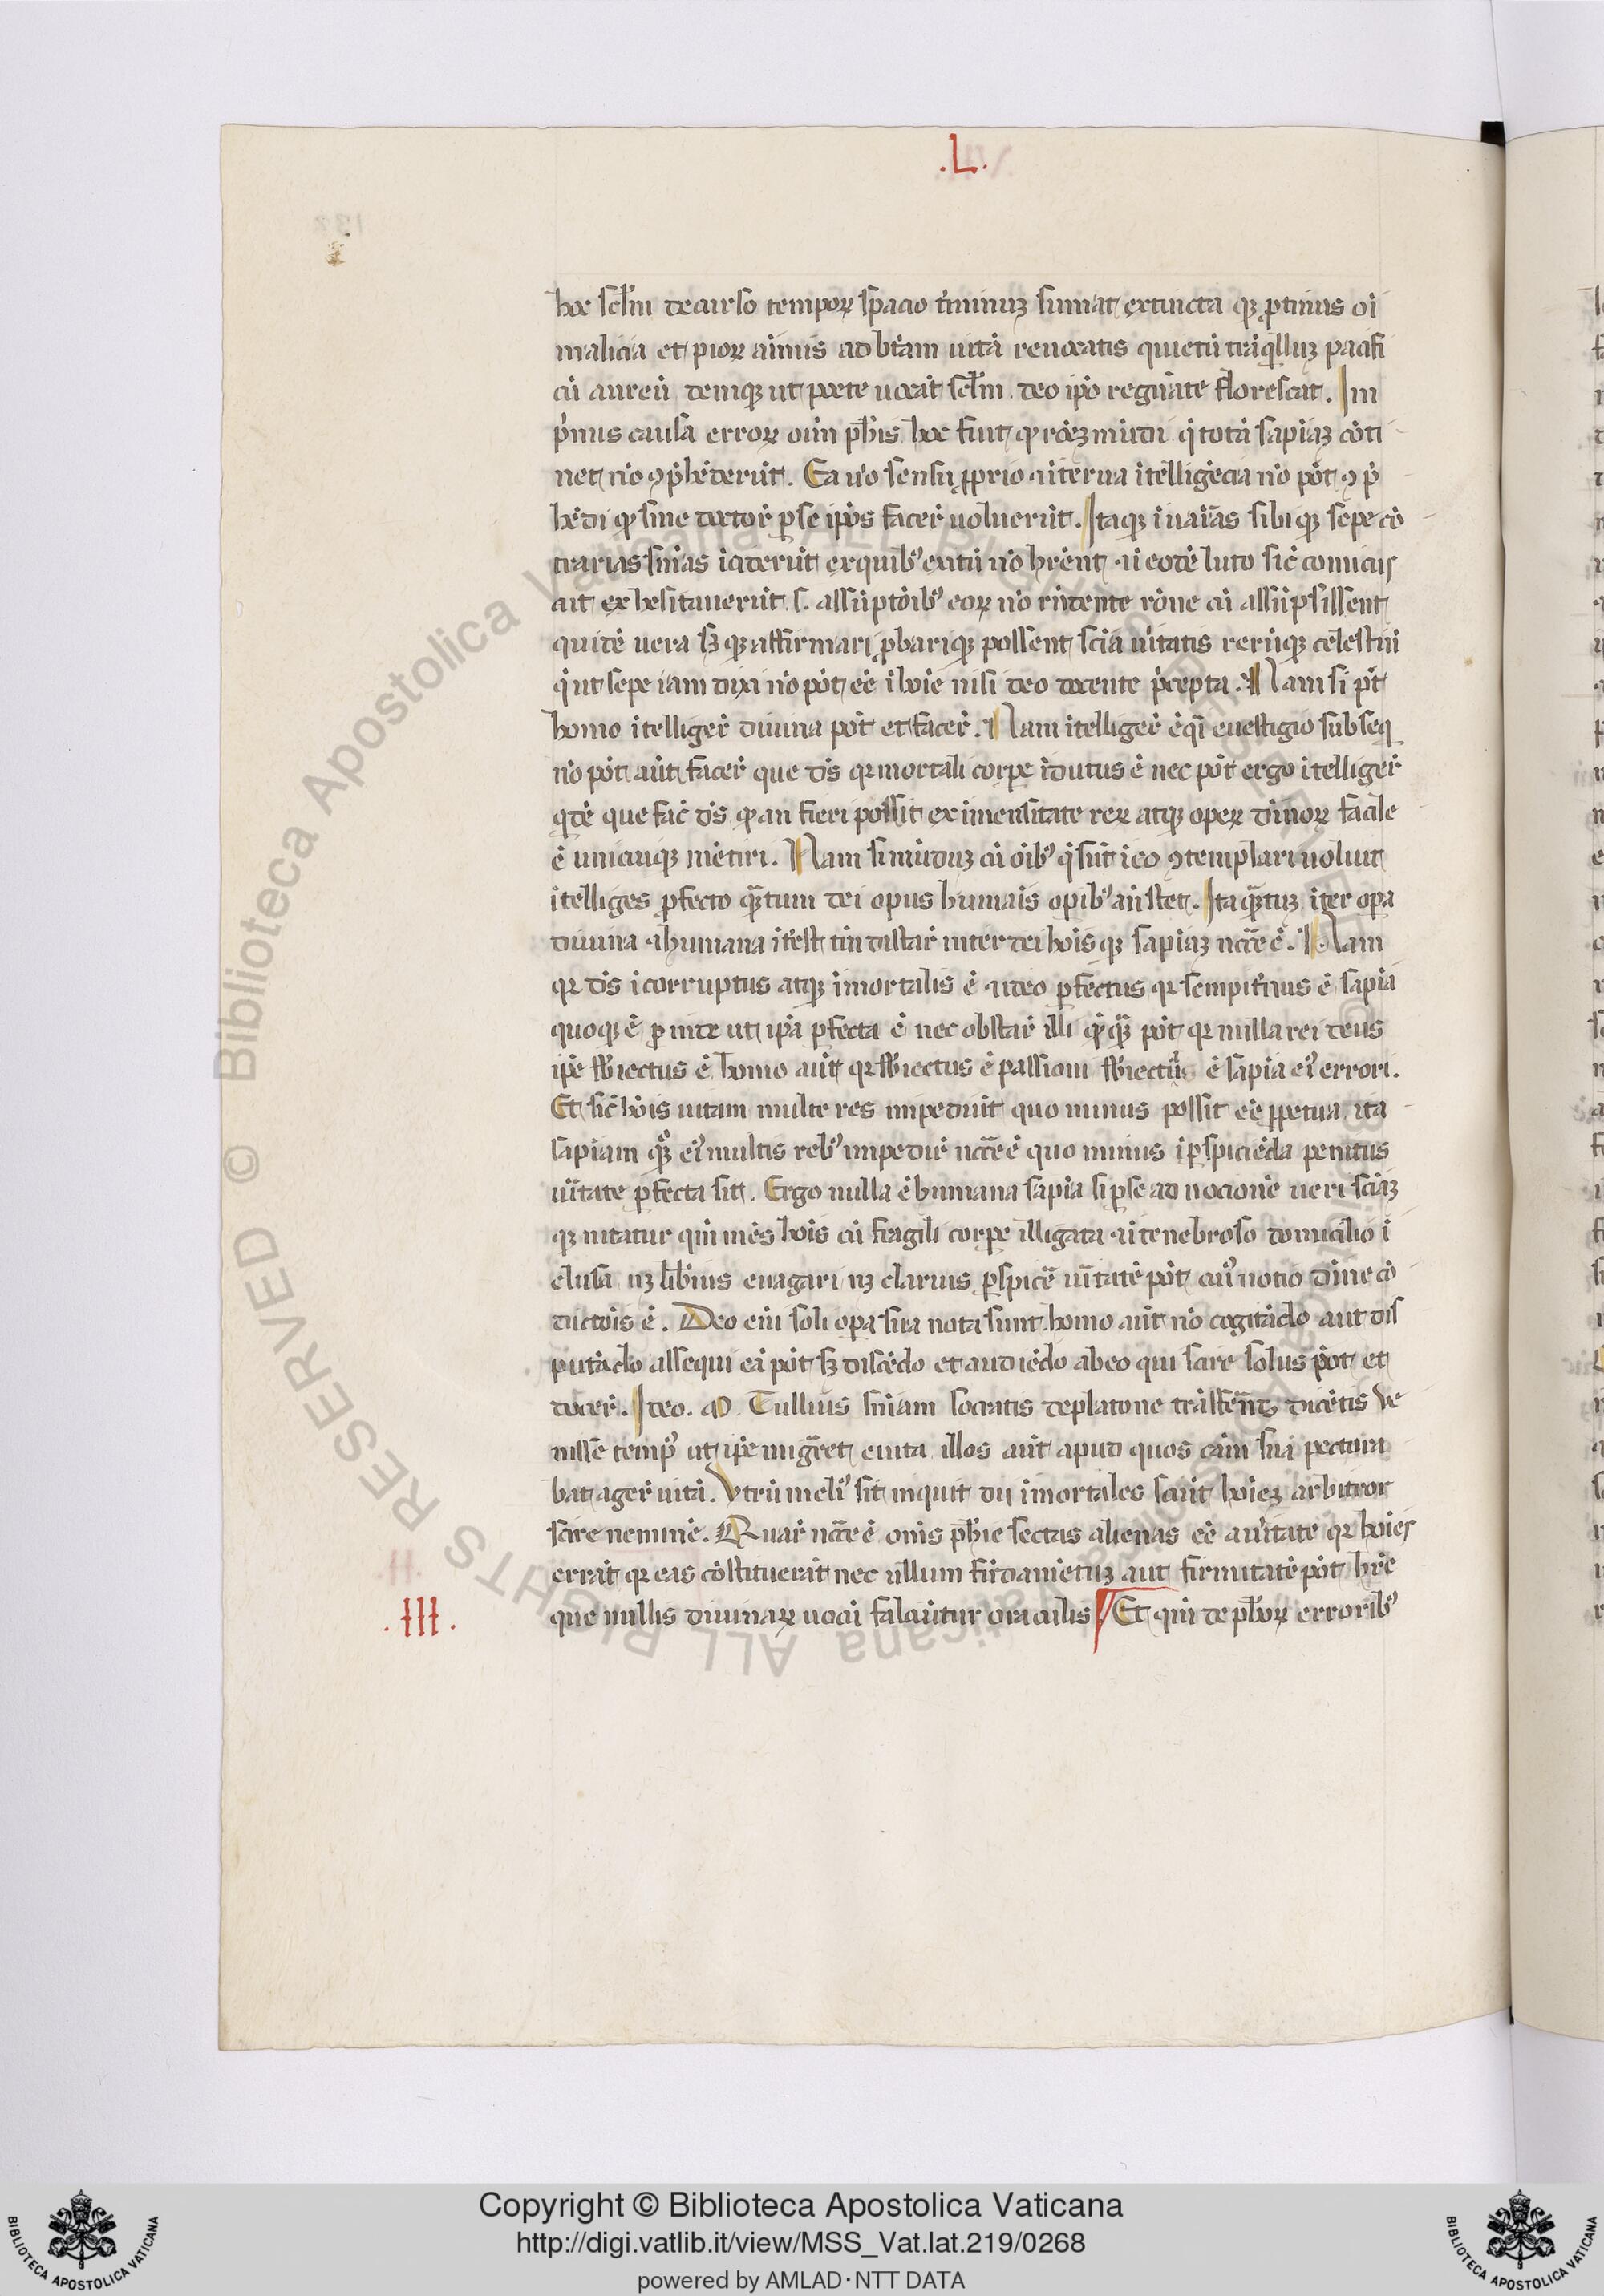 .L.
hoc scl̄m decurso tempoꝝ spacio t̓minuꝫ sumat extincta qꝫ ꝓtinus oī
malicia et pioꝝ aīmis ad bt̄am uitā reuocatis quietū trāq̓lluꝫ pacifi
cū aureū deniqꝫ ut poete uocāt scl̄m deo ip̄o regnāte florescat. In
p̓mis causa erroꝝ oīm ph̄is hoc fuit qꝫ rōeꝫ mūdi q̓ totā sapīaꝫ cōti
net nō ꝯp̓hēderūt. Ea u̓o sensu ꝓprio ⁊ īterna ītelligēcia nō pōt ꝯp̓
hēdi qꝫ sine doctor̓ ꝑ se ip̄os facer̓ uoluerūt. Itaqꝫ ī uarīas sibiqꝫ sepe cō
trarias sn̄ias īciderūt ex quibꝰ exitū nō hr̄ent ⁊ ī eodē luto sic̄ comicus
ait ex hesitauerūt .s. assūptōibꝰ eoꝝ nō rn̄dente rōne cū assūpsissent
quidē uera sꝫ qꝫ affirmari ꝓbariqꝫ possent scīa ūitatis rerūqꝫ celestiū
q̓ ut sepe iam dixi nō pōt eē ī hoīe nisi deo docente p̓cepta. Nam si pōt
homo ītelliger̓ diuina pōt et facer̓. Nam ītelliger̓ ē q̄i euestigio subseq̄
nō pōt aūt facer̓ que ds̄ qꝛ mortali corꝑe īdutus ē nec pōt ergo ītelliger̓
q̓dē que fac̄ ds̄ qꝫ an fieri possit ex īmensitate reꝝ atqꝫ opeꝝ diuīoꝝ facile
ē unicuiqꝫ mētiri. Nam si mūduꝫ cū oībꝰ q̓ sūt ī eo ꝯtemplari uolueit
ītelliges ꝓfecto q̄tum dei opus humāis opibꝰ ānstet. Ita q̄tuꝫ īter opa
diuina ⁊ humana īt̓est tm̄ distar̓ inter dei hoīs qꝫ sapīaꝫ nc̄cē ē. Nam
qꝛ ds̄ īcorruptus atqꝫ īmortalis ē ⁊ ideo ꝑfectus qꝛ sempit̓nus ē sapīa
quoqꝫ ē ꝓinde ut ip̄a ꝑfecta ē nec obstar̓ illi q̓cq̄ pōt qꝛ nulla rei deus
ip̄e sb̄iectus ē homo aūt qꝛ sb̄iectus ē passioni sb̄iecta ē sapīa eiꝰ errori.
Et sic̄ hōis uitam multe res impediūt quo minus possit eē ꝑpetua ita
sapīam qꝫ eiꝰ multis rebꝰ impedir̓ nc̄cē ē quo minus ī ꝑspiciēda penitus
ūitate ꝑfecta sit. Ergo nulla ē humana sapīa si ꝑ se ad nocionē ueri scīaꝫ
qꝫ nitatur qm̄ mēs hoīs cū fragili corꝑe illigata ⁊ ī tenebroso domicilio ī
clusa nꝫ lib̄ius euagari nꝫ clarius ꝑspicē ūitatē pōt cuiꝰ notio diuīe cō
dictōis ē. Deo eīm soli oꝑa sua nota sunt homo aūt nō cogitādo aut dis
putādo assequi eā pōt sꝫ discēdo et audiēdo ab eo qui scire solus pōt et
docer̓. Ideo .M. Tullius sn̄iam socratis de platone trāsferēs dicētis ve
nisse tempꝰ ut ip̄e migrēt e uita illos aūt apud quos cām suā pectora
bat ager̓ uitā. Vtrū meliꝰ sit inquit dii īmortales sciūt hoīeꝫ arbitror
scire neminē. Quar̓ nc̄cē ē om̄is ph̄ie sectas alienas eē a ūitate qꝛ hoīes
errāt qꝛ eas cōstituerāt nec ullum firdamētuꝫ aut firmitatē pōt hr̄e
que nullis diuinaꝝ uocū falciūtur oraculis ¶ Et qm̄ de ph̄oꝝ erroribꝰ
.III.
Copyright © Biblioteca Apostolica Vaticana
http://digi.vatlib.it/view/MSS_Vat.lat.219/0268
powered by AMLAD·NTT DATA
BIBLIOTECA APOSTOLICA VATICANA
BIBLIOTECA APOSTOLICA VATICANA